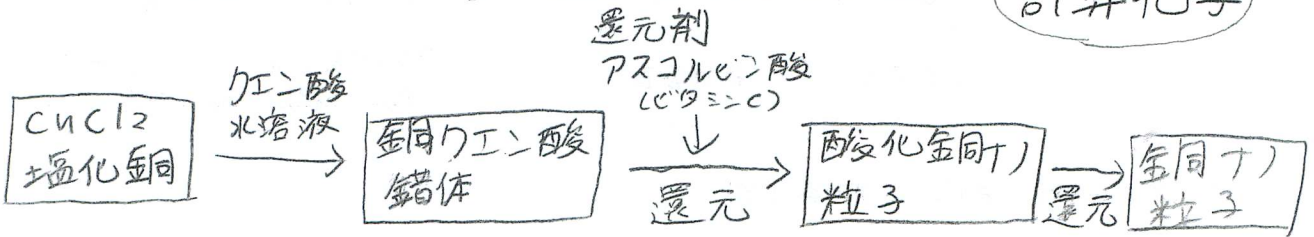 計算化学
CuCl2
塩化銅
クエン酸
水溶液
銅クエン酸
錯体
還元剤
アスコルビン酸
(ビタミンC)
還元
酸化銅ナノ
粒子
還元
銅ナノ
粒子